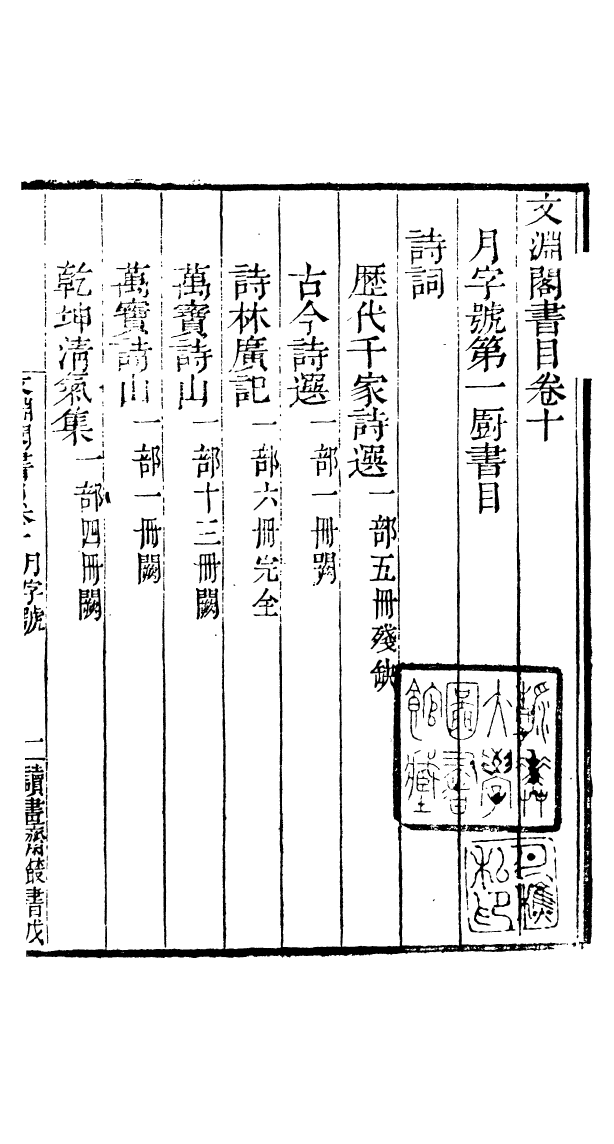 文淵閣書目卷十
月字號第一厨書目
詩詞
歷代千家詩選一部五冊殘缺
古今詩選一部一冊闕
詩林廣記一部六冊完全
萬寶詩山一部十三冊闕
萬寶詩山一部一冊闕
乾坤淸氣集一部四冊闕
文淵閣書目卷十月字號
一
讀畫齋叢書戊
大學
圖書
館藏
私印